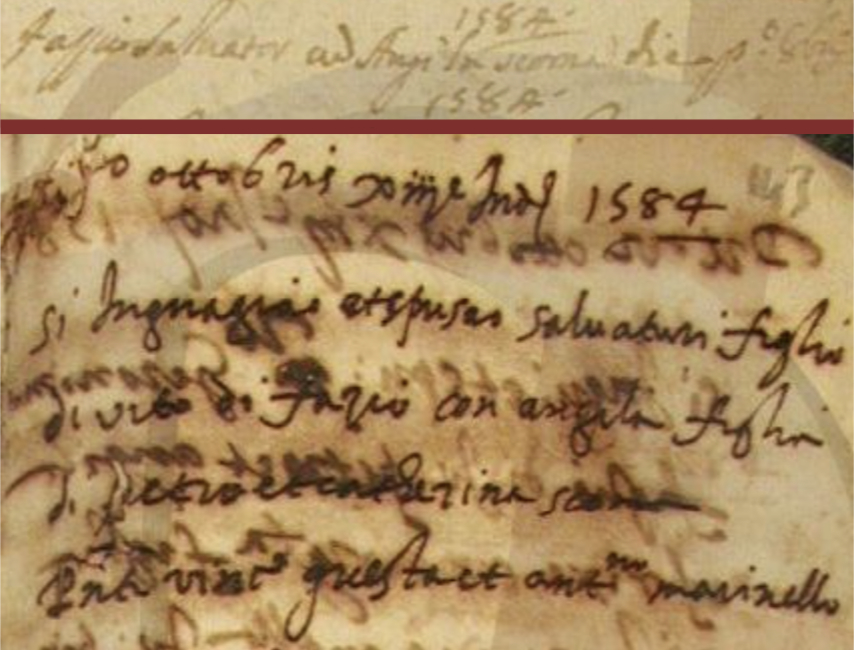 1584
Fazio Salvator cu Angila scorma die p.º 8bris
1584
p.º ottobris xiij.e Ind. 1584
si Inguaggiao et spusao salvaturi figlio
di vito di fazio con angila figlia
di pietro et catherina scorma
Pnti vinc.º questa et ant.no marinello